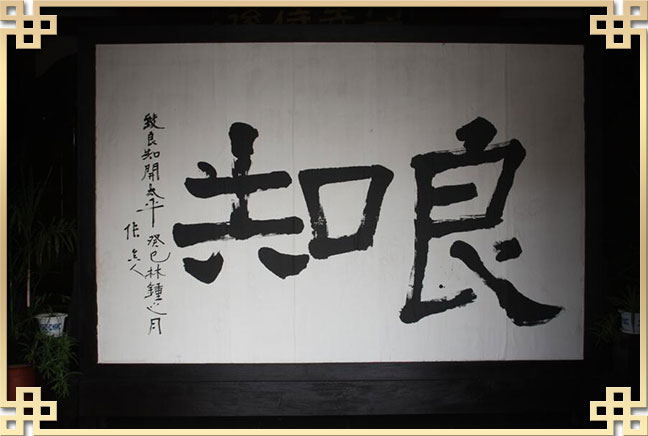 良知
致良知開太平
癸巳林鍾之月